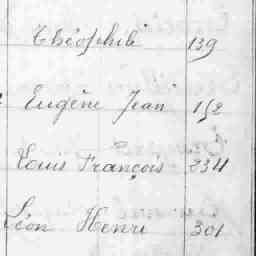 Théophile 139
Eugène Jean 152
Louis François 234
Léon Henri 301